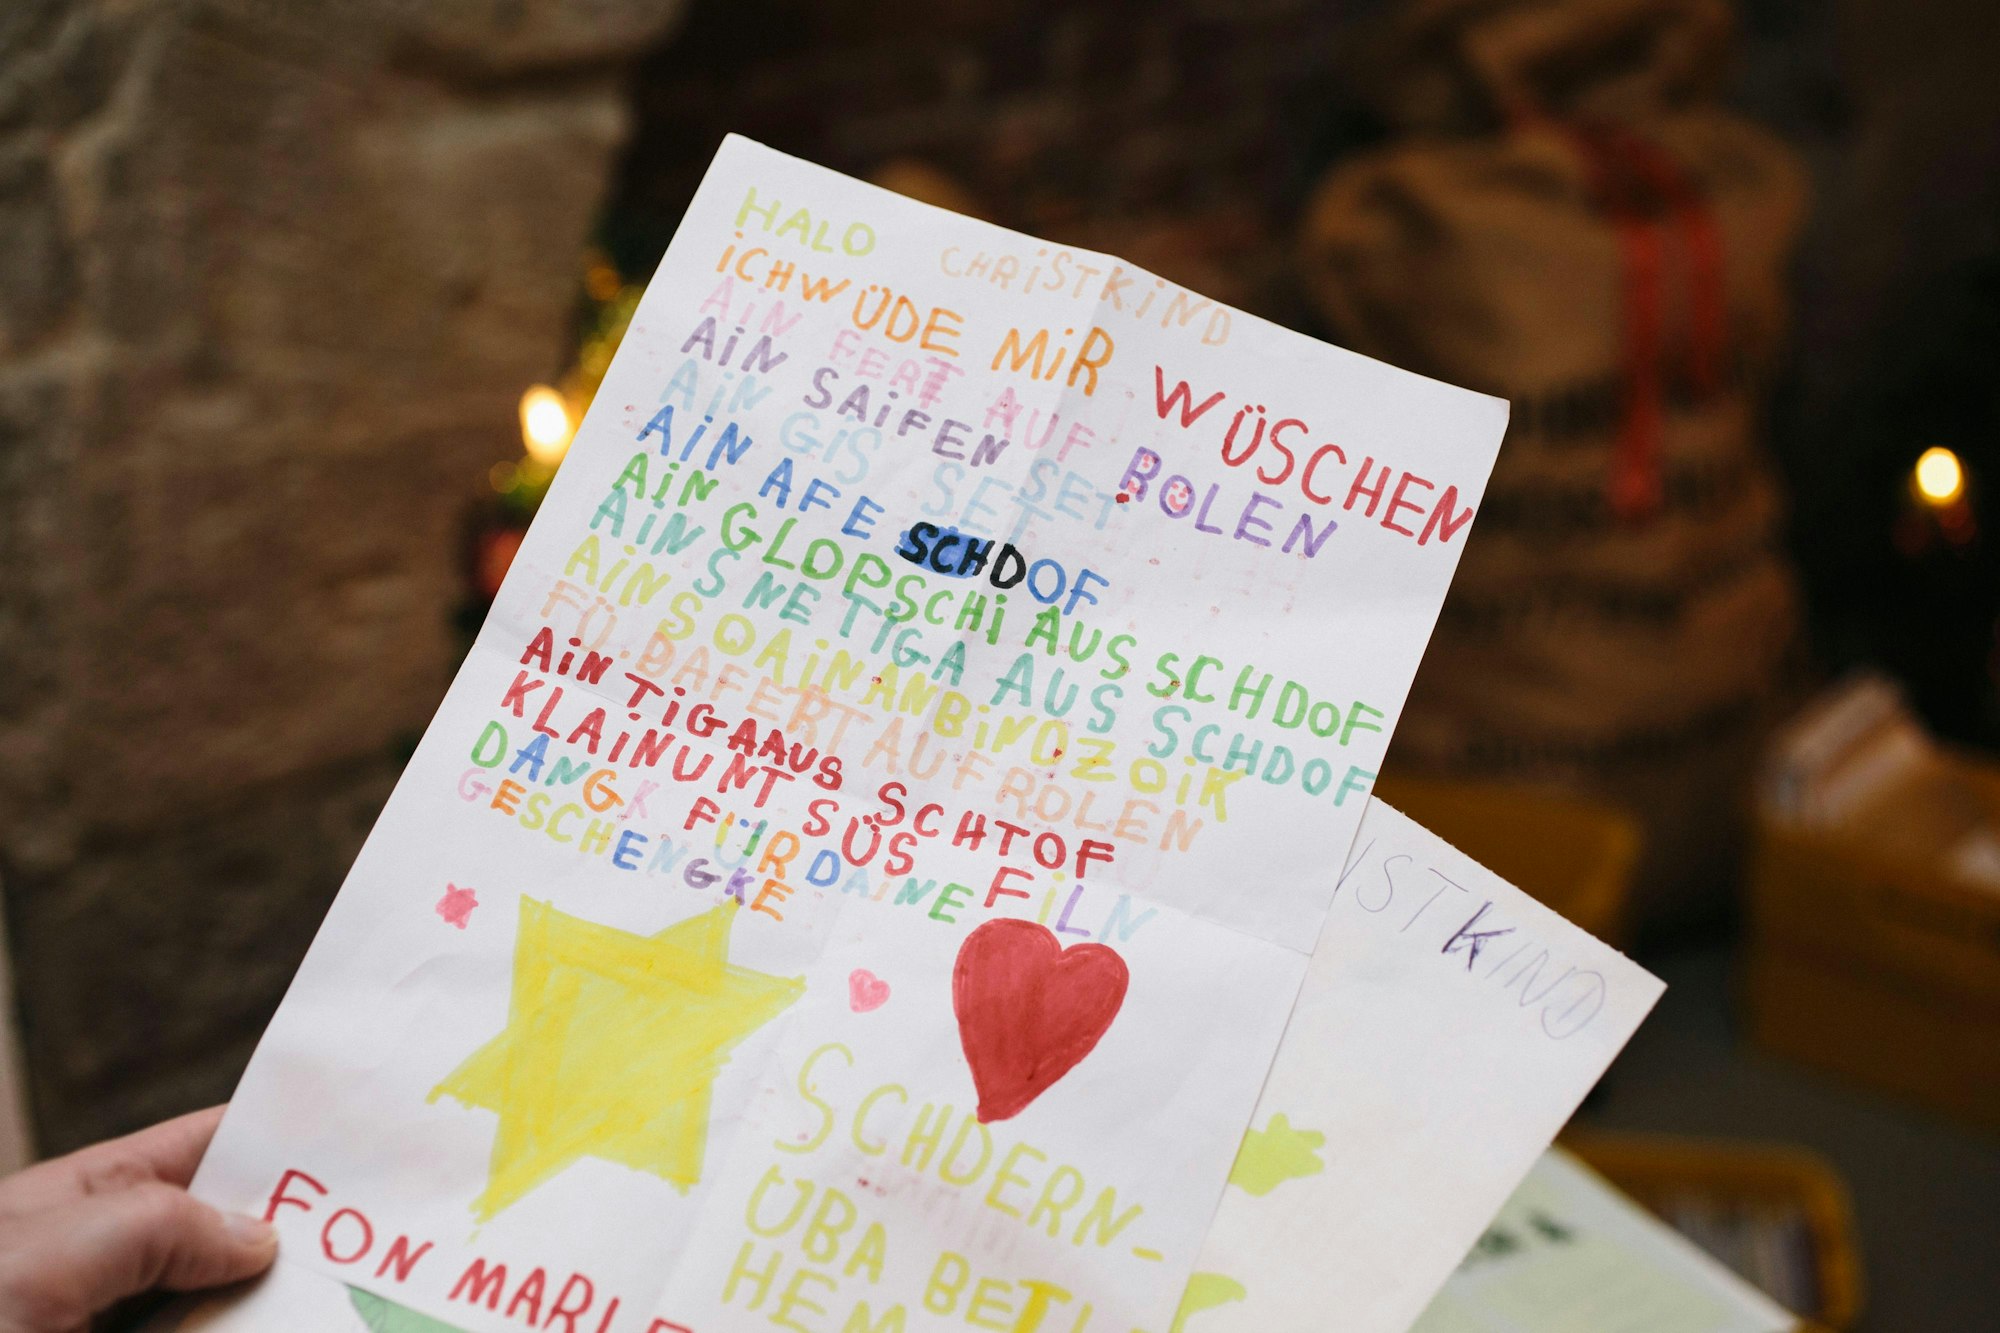 HALO CHRiSTKiND
iCHWÜDE MiR WÜSCHEN
AiN FERT AUF ROLEN
AiN SAiFEN SET
AiN GiS SET
AiN AFE SCHDOF
AiN GLOPSCHi AUS SCHDOF
AiN SNETIGA AUS SCHDOF
AiNSOAiNANBiNDZOiK
FÜ.DAFERTAUFROLEN
AiN TiGAAUS SCHTOF
KLAiNUNT SÜS FiLN
DANGK FÜR DAiNE
GESCHENGKE
SCHDERN-
ÜBA BETL
HEM
FON MARLE
iSTKIND